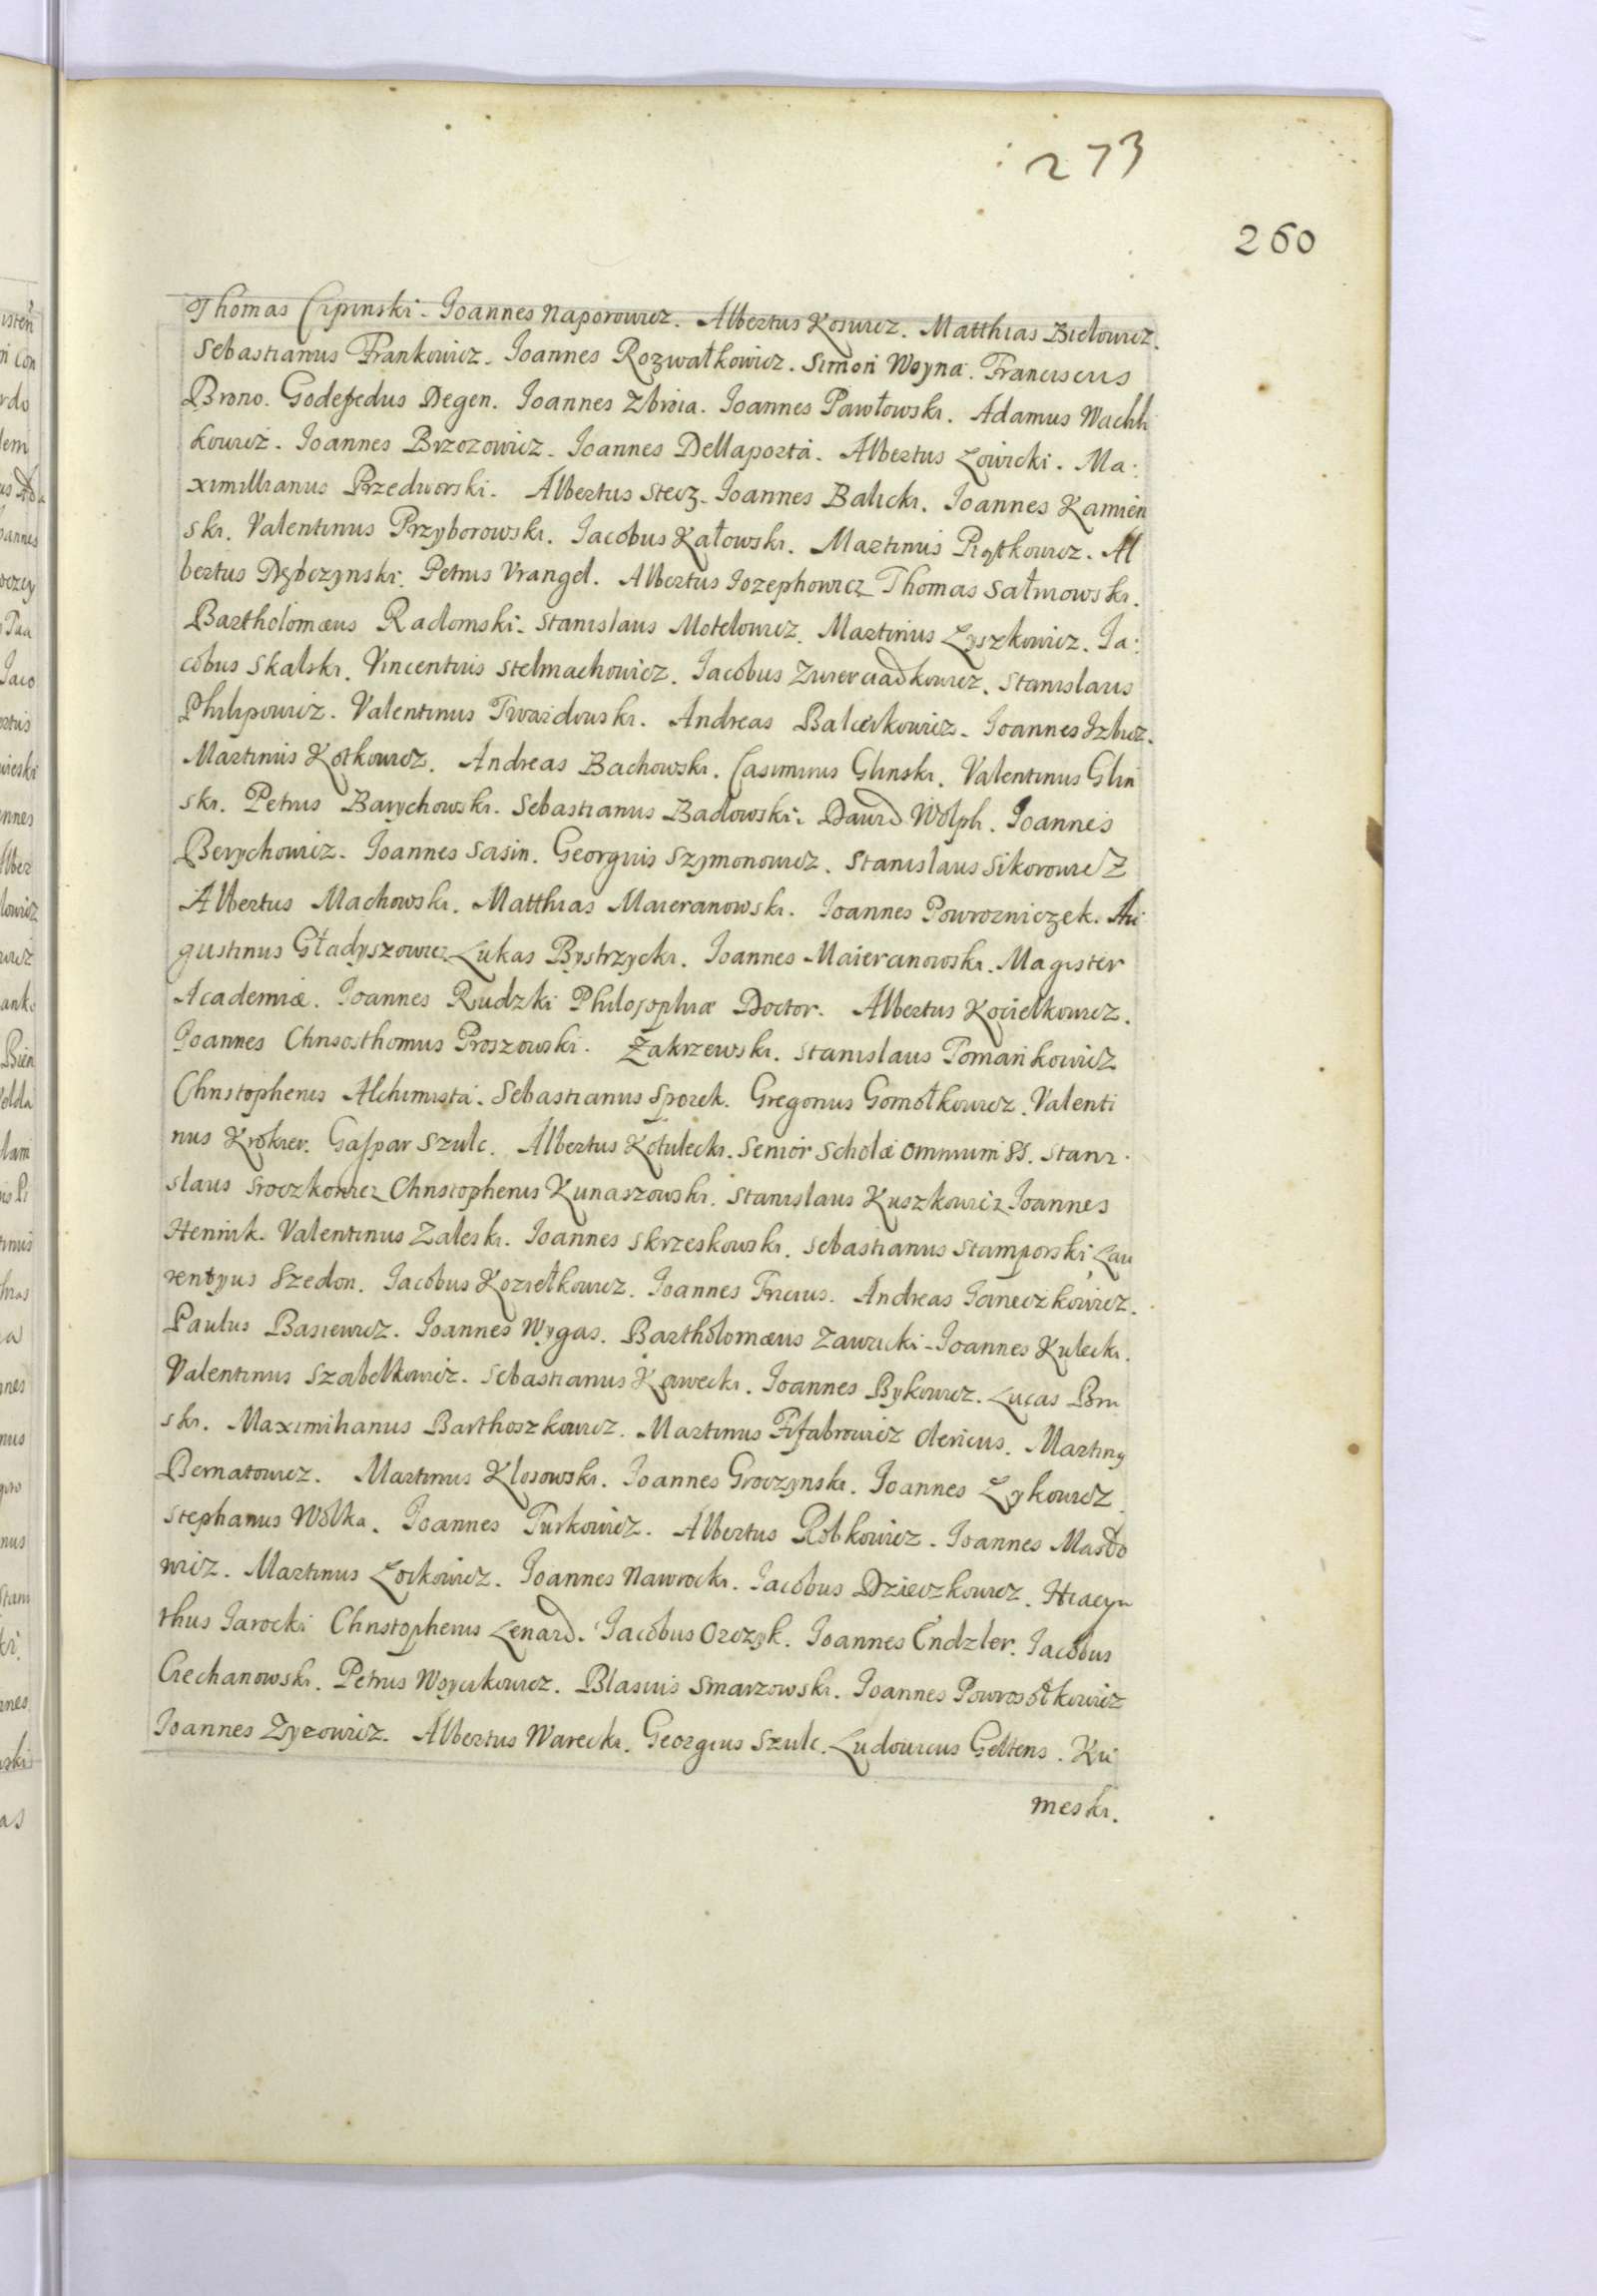 273
260
Thomas Cipinski. Joannes Naporowicz. Albertus Kosuicz. Matthias Bielowicz.
Sebastianus Frankowicz. Joannes Rozwałkowicz. Simon Woyna. Franciscus
Brono. Godefedus Degen. Joannes Zbroia. Joannes Pawłowski. Adamus Wachli
kowicz. Joannes Brzozowicz. Joannes Dellaporta. Albertus Łowicki. Ma:
ximillianus Przedworski. Albertus Stecz. Joannes Balicki. Joannes Kamien
ski. Valentinus Przyborowski. Jacobus Kałowski. Martinus Piątkowicz. Al
bertus Dębczynski. Petrus Vrangel. Albertus Jozephowicz Thomas Sałinowski.
Bartholomæus Radomski. Stanislaus Motelowicz. Martinus Łyszkowicz. Ja:
cobus Skalski. Vincentius Stelmachowicz. Jacobus Zwierciadkowicz. Stanislaus
Philipowicz. Valentinus Twardowski. Andreas Balcerkowicz. Joannes Izbicz.
Martinus Kotkowicz. Andreas Bachowski. Casimirus Glinski. Valentinus Glin
ski. Petrus Barychowski. Sebastianus Badowski. David Wolph. Joannes
Berychowicz. Joannes Sasin. Georgius Szymonowicz. Stanislaus Sikorowicz
Albertus Machowski. Matthias Maieranowski. Joannes Powrozniczek. Au
gustinus Gładyszowicz Lukas Bystrzycki. Joannes Maieranowski. Magister
Academiæ. Joannes Rudzki Philosophiæ Doctor. Albertus Kocielkowicz.
Joannes Chrisosthomus Proszowski. Zakrzewski. Stanislaus Tomankowicz
Christopherus Alchimista. Sebastianus Sporek. Gregorius Gomołkowicz. Valenti
nus Krokier. Gaspar Szulc. Albertus Kotulecki. Senior Scholæ Omnium SS. Stani.
slaus Sroczkowicz Christopherus Kunaszowski. Stanislaus Kuszkowicz Joannes
Henrik. Valentinus Zaleski. Joannes Skrzeskowski. Sebastianus Stamporski. Lau
rentyus Szedon. Jacobus Koziełkowicz. Joannes Fricius. Andreas Janeczkowicz.
Paulus Basiewicz. Joannes Wygas. Bartholomæus Zawicki. Joannes Kulecki.
Valentinus Szabelkowicz. Sebastianus Kawecki. Joannes Bykowicz. Lucas Bru
ski. Maximilianus Barthoszkowicz. Martinus Fifabrowicz clericus. Martiny
Bernatowicz. Martinus Klosowski. Joannes Groczynski. Joannes Łykowicz
Stephanus Wolka. Joannes Turkowicz. Albertus Robkowicz. Joannes Masło
wicz. Martinus Łoikowicz. Joannes Nawrocki. Jacobus Dzieczkowicz. Hiacyn
thus Jarocki Christopherus Lenard. Jacobus Orczyk. Joannes Endzler. Jacobus
Ciechanowski. Petrus Woycikowicz. Blasius Smarzowski. Joannes Powrosołkowicz
Joannes Zyzowicz. Albertus Warecki. Georgius Szulc. Ludovicus Geltens. Ku
meski.